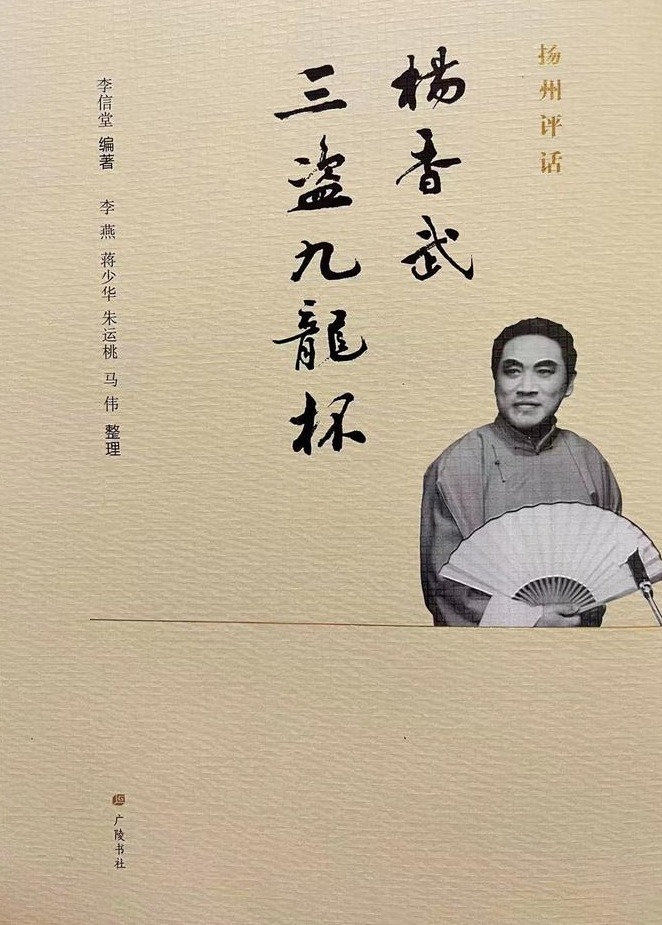 扬州评话
楊香武
三盗九龍杯
李信堂 编著
李燕 蒋少华 朱运桃 马伟 整理
广陵书社